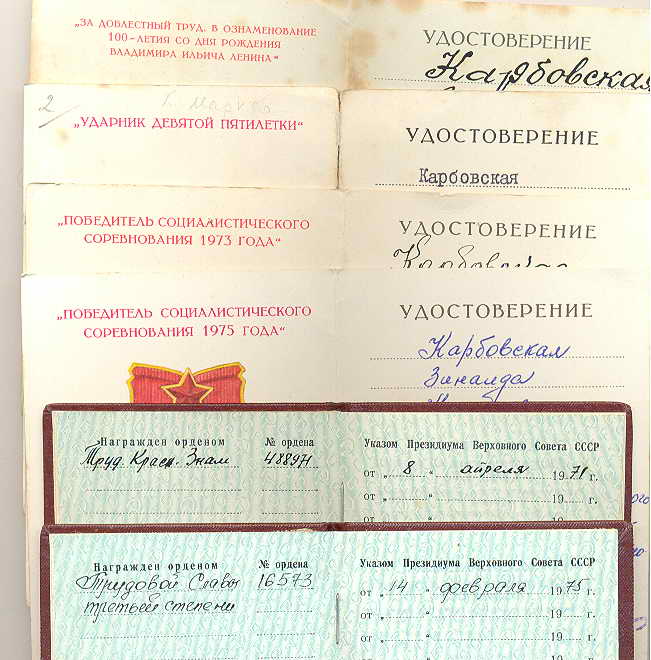 „ЗА ДОБЛЕСТНЫЙ ТРУД. В ОЗНАМЕНОВАНИЕ
100-ЛЕТИЯ СО ДНЯ РОЖДЕНИЯ
ВЛАДИМИРА ИЛЬИЧА ЛЕНИНА“
УДОСТОВЕРЕНИЕ
Карбовская
2
„УДАРНИК ДЕВЯТОЙ ПЯТИЛЕТКИ“
УДОСТОВЕРЕНИЕ
Карбовская
„ПОБЕДИТЕЛЬ СОЦИАЛИСТИЧЕСКОГО
СОРЕВНОВАНИЯ 1973 ГОДА“
УДОСТОВЕРЕНИЕ
Карбовская
„ПОБЕДИТЕЛЬ СОЦИАЛИСТИЧЕСКОГО
СОРЕВНОВАНИЯ 1975 ГОДА“
УДОСТОВЕРЕНИЕ
Карбовская
Зинаида
Награжден орденом № ордена
Труд. Красн. Знам 488971
Указом Президиума Верховного Совета СССР
от „ 8 “ апреля 1971 г.
от „ “ 19 г.
Награжден орденом № ордена
Трудовой Славы 16573
третьей степени
Указом Президиума Верховного Совета СССР
от „ 14 “ февраля 1975 г.
от „ “ 19 г.
от „ “ 19 г.